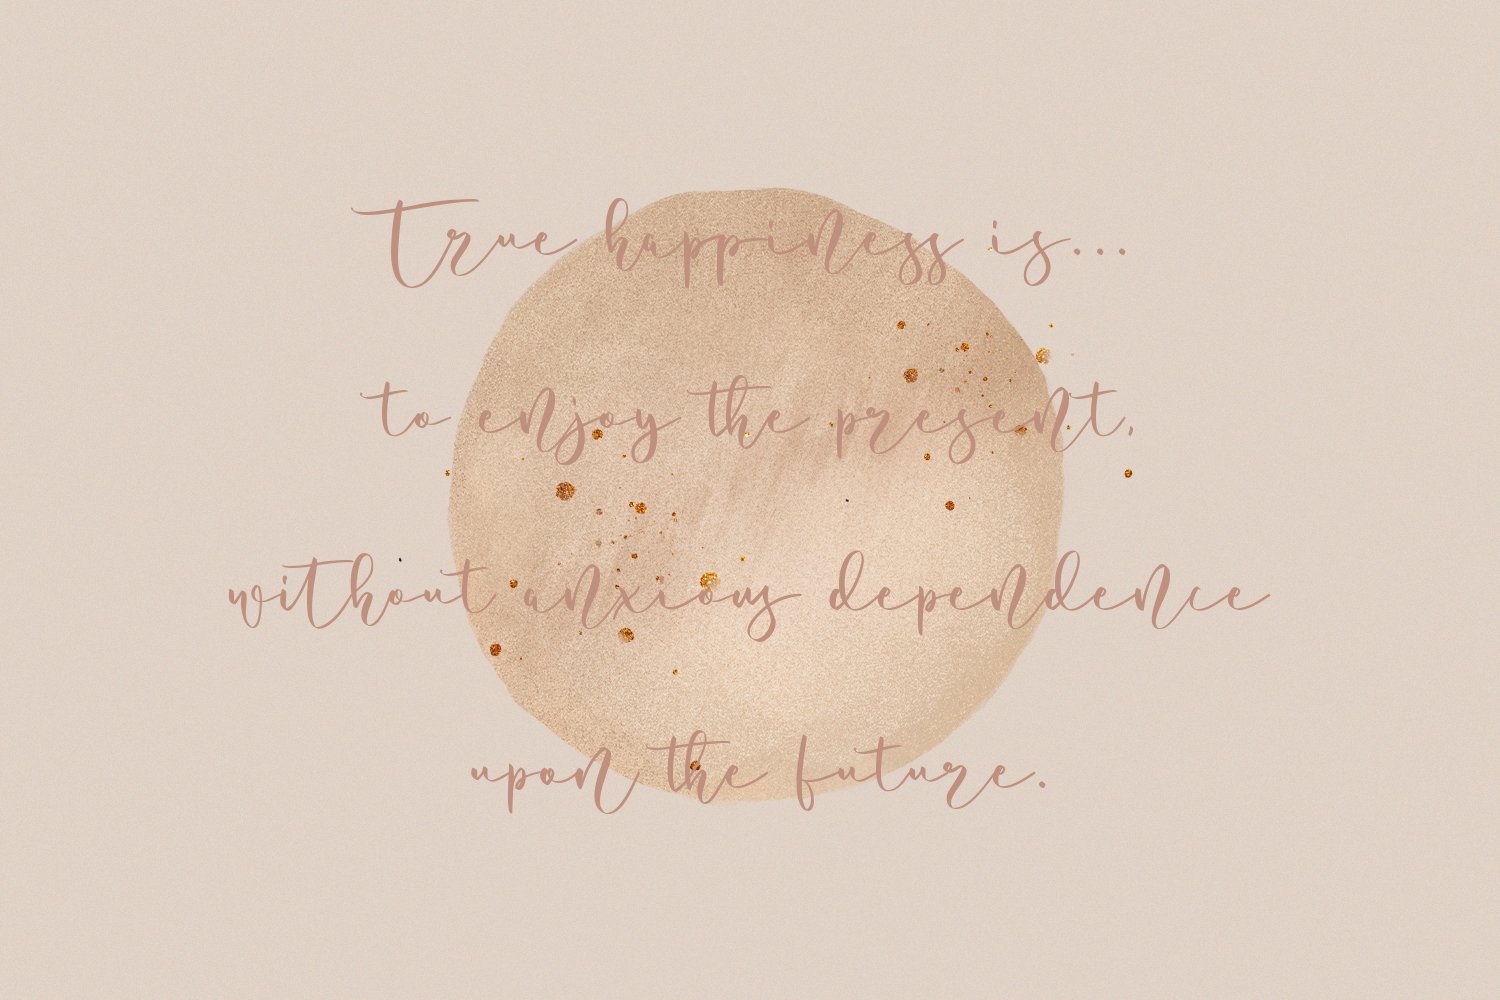 True happiness is...
to enjoy the present,
without anxious dependence
upon the future.